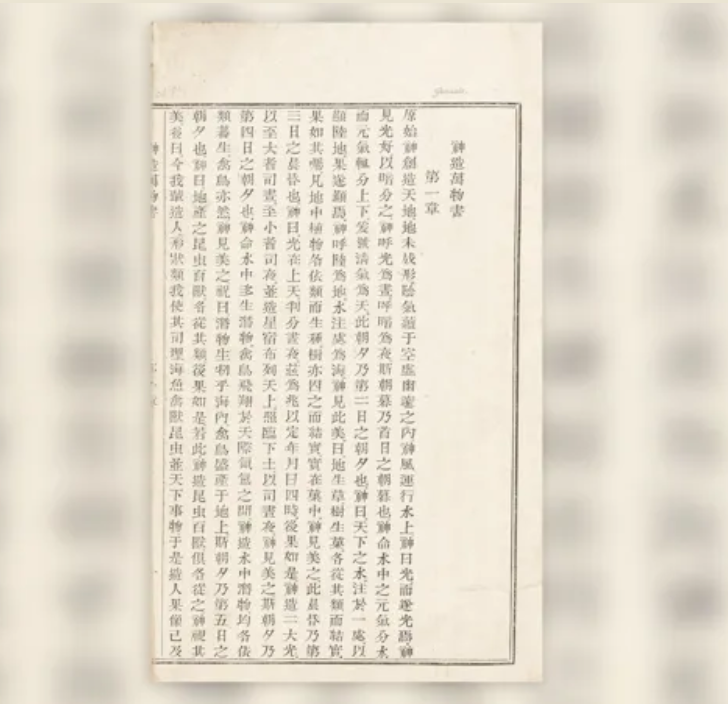 Genesis.
神造萬物書
第一章
原始神創造天地地未成形陰氣蘊于空虛幽邃之內神風運行水上神曰光而遂光焉神
見光好以暗分之神呼光為晝呼暗為夜斯朝暮乃首日之朝暮也神命水中之元氣分水
而元氣輒分上下发號清氣為天此朝夕乃第二日之朝夕也神曰天下之水注於一處以
顯陸地果遂顯焉神呼陸為地水注處為海神見此美曰地生草樹生菓各從其類而結實
果如其囑凡地中植物各依類而生種樹亦因之而結實實在菓中神見美之此晨昏乃第
三日之晨昏也神曰光在上天判分晝夜茲為兆以定年月日四時後果如是神造二大光
以至大者司晝至小者司夜並造星宿布列天上照臨下土以司晝夜神見美之斯朝夕乃
第四日之朝夕也神命水中多生潛物禽鳥飛翔於天際氤氳之間神造水中潛物均各依
類蕃生禽鳥亦然神見美之祝曰潛物生牣乎海內禽鳥盛產于地上斯朝夕乃第五日之
朝夕也神曰地產之昆虫百獸各從其類後果如是若此神造昆虫百獸俱各從之神視其
美者曰今我儕造人形狀類我使其司理海魚禽獸昆虫並天下事物于是造人果像己及
神造萬物書